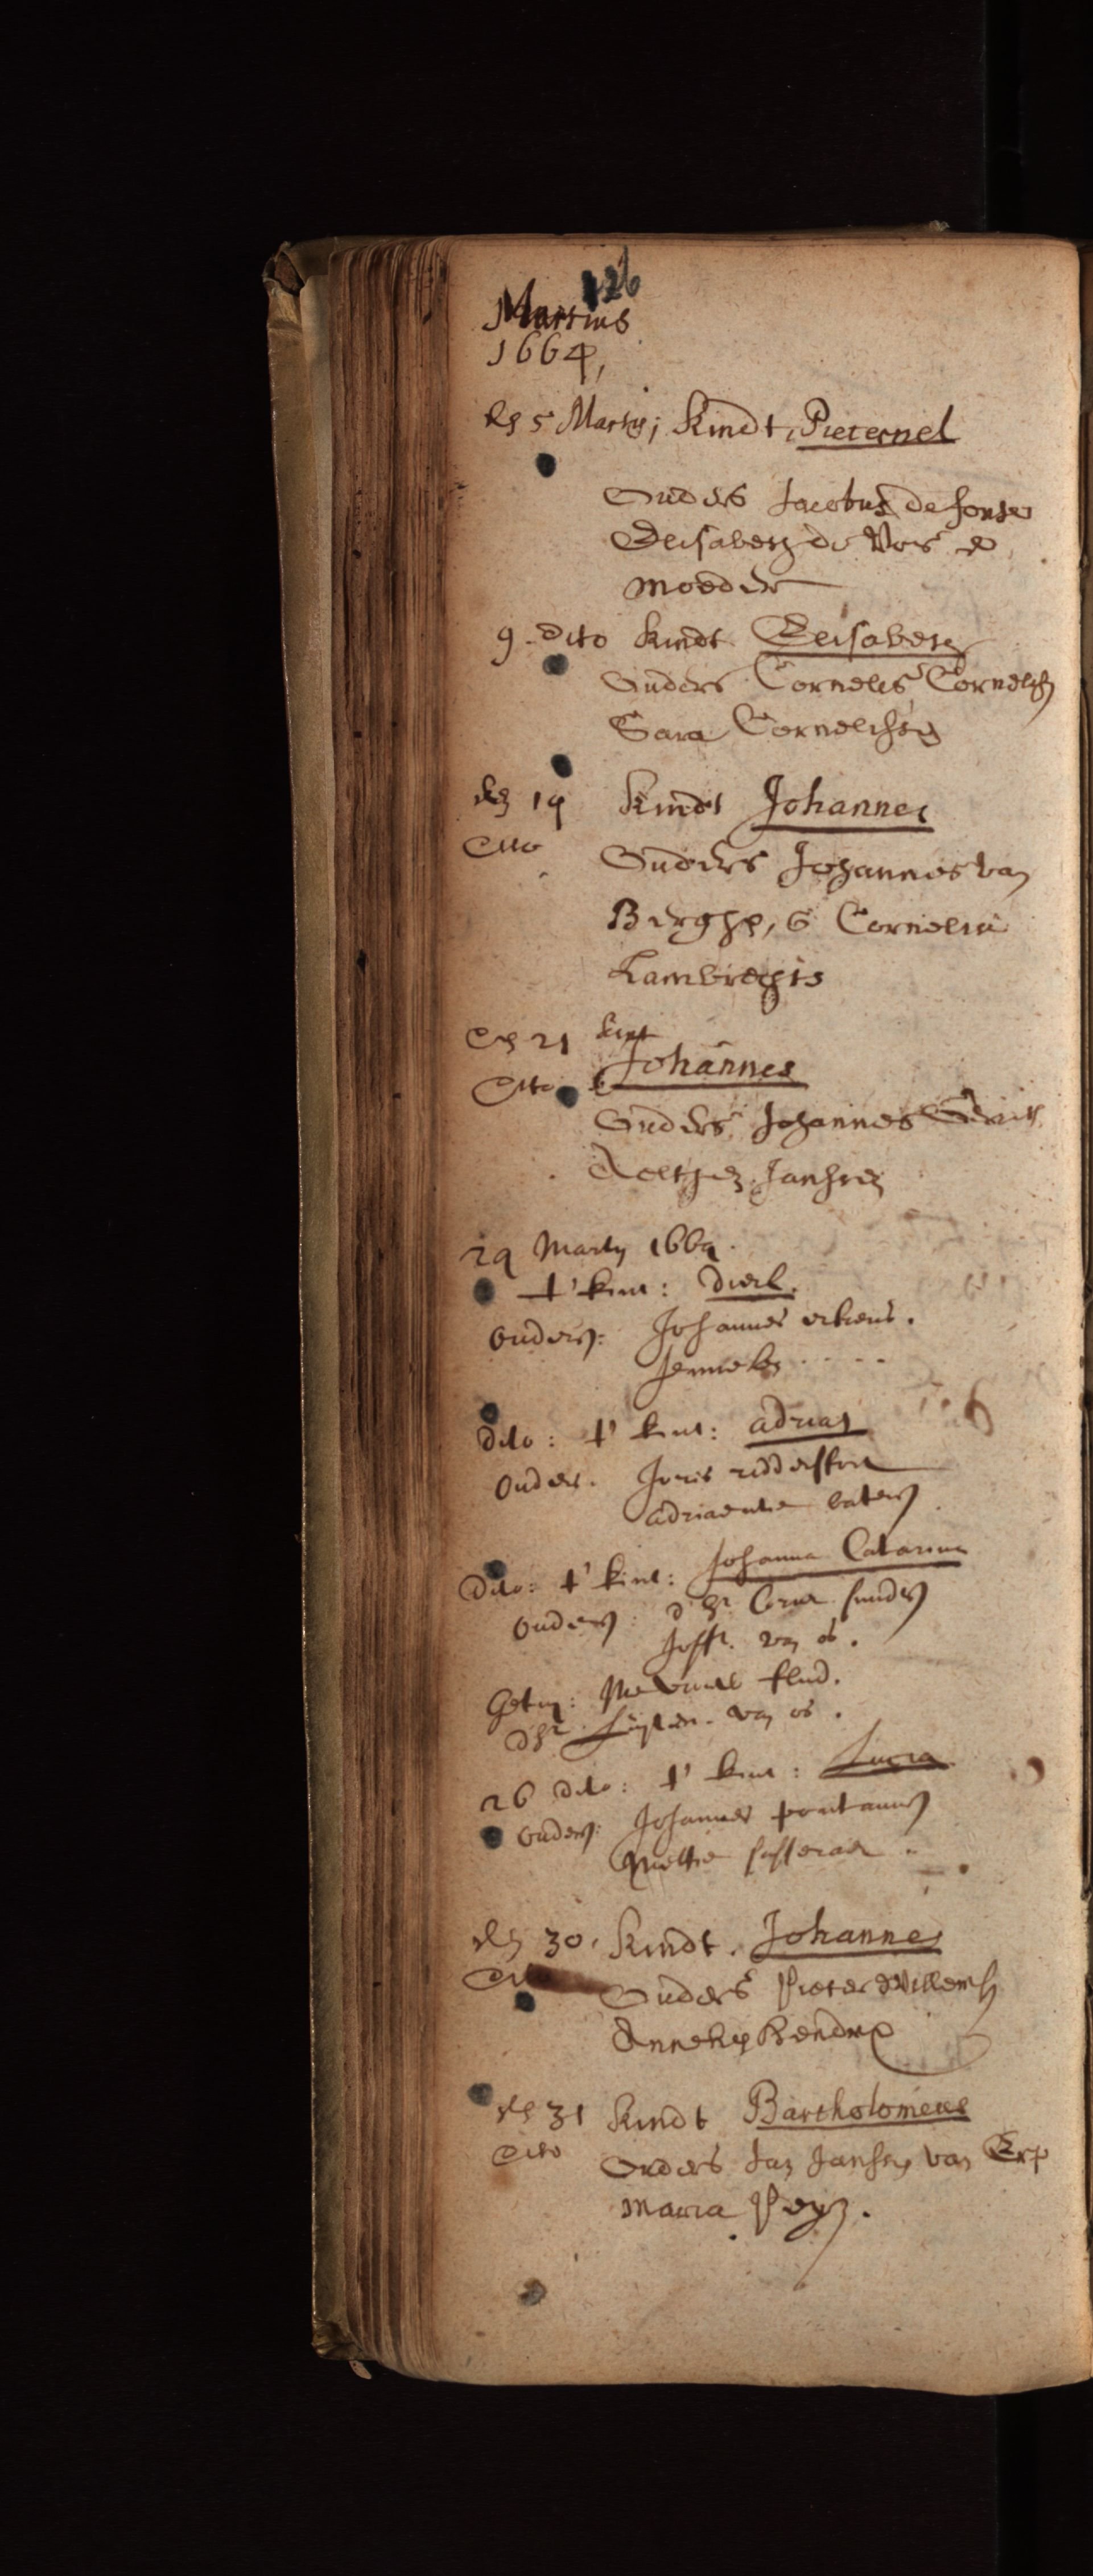 126
Martius
1664,
den 5 Martij; Kindt, Pieternel
Ouders Jacobus de
Elisabeth de Vos de
moeder
9. dito kindt Elisabeth
Ouders Cornelis Cornelisz
Sara Cornelissen
den 19 Kindt Johannes
dito Ouders Johannes van
Berghe, & Cornelia
Lambrechts
den 21 kint
dito Johannes
Ouders Johannes Gerrits
Aeltjen Janssen
24 Martij 1664.
t' kint: Dirk.
Ouders: Johannes
Jenneken . . . . .
dito: t' kint: adrian
Ouders. Joris ridderskou
adriaentie
dito: t' kint: Johanna Catarina
Ouders: d Hr. Corn.
Joffr. van os.
Getu:
d Hr. van os.
26 dito: t' kint: Lucia
Ouders: Johannes pontanus
Mettie
den 30. kindt. Johannes
Ouders Pieter Willemsz
Anneken Hendrix
den 31 kindt Bartholomeus
dito Ouders Jan Jansen van Erp
Maria